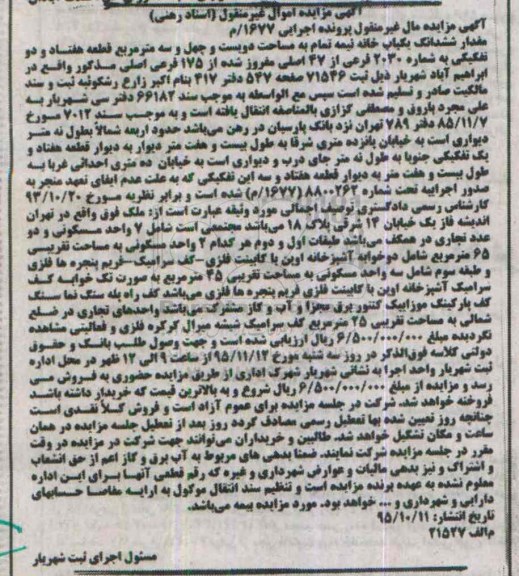 آگهی مزایده اموال غیرمنقول (اسناد رهنی)
آگهی مزایده مال غیرمنقول پرونده اجرایی ۱۶۷۷/م
مقدار ششدانگ یکباب خانه نیمه تمام به مساحت دویست و چهل و سه مترمربع قطعه هفتاد و دو
تفکیکی به شماره ۲۰۳۰ فرعی از ۴۷ اصلی مفروز شده از ۱۷۵ فرعی اصلی مذکور واقع در
ابراهیم آباد شهریار ذیل ثبت ۷۱۵۴۶ صفحه ۵۴۷ دفتر ۴۱۷ بنام اکبر زارع رشکوئیه ثبت و سند
مالکیت صادر و تسلیم شده است سپس مع الواسطه به موجب سند ۶۶۱۸۲ دفتر سی شهریار به
علی مجرد باروق و مصطفی گزازی بالمناصفه انتقال یافته است و به موجب سند ۷۰۱۲ مورخ
۸۵/۱۱/۷ دفتر ۷۸۹ تهران نزد بانک پارسیان در رهن می‌باشد حدود اربعه شمالاً بطول نه متر
دیواری است به خیابان پانزده متری شرقا به طول بیست و هفت متر دیوار به دیوار قطعه هفتاد و
یک تفکیکی جنوبا به طول نه متر جای درب و دیواری است به خیابان ده متری احداثی غربا به
طول بیست و هفت متر به دیوار قطعه هفتاد و سه این تفکیکی که به علت عدم ایفای تعهد منجر به
صدور اجراییه تحت شماره ۸۸۰۰۲۶۲ (۱۶۷۷/م) شده است و برابر نظریه مورخ ۹۳/۱۰/۲۰
کارشناس رسمی دادگستری توصیف اجمالی مورد وثیقه عبارت است از: ملک فوق واقع در تهران
اندیشه فاز یک خیابان ۱۳ شرقی پلاک ۱۸ می‌باشد مجتمعی است شامل ۷ واحد مسکونی و دو
عدد تجاری در همکف می‌باشد طبقات اول و دوم هر کدام ۲ واحد مسکونی به مساحت تقریبی
۶۵ مترمربع شامل دوخوابه آشپزخانه اوپن با کابینت فلزی -کف سرامیک- فریم پنجره ها فلزی
و طبقه سوم شامل سه واحد مسکونی به مساحت تقریبی ۴۵ مترمربع به صورت تک خوابه کف
سرامیک آشپزخانه اوپن با کابینت فلزی فریم پنجره ها فلزی می‌باشد کف راه پله سنگ نما سنگ
کف پارکینگ موزاییک کنتور برق مجزا و آب و گاز مشترک می‌باشد واحدهای تجاری در ضلع
شمالی به مساحت تقریبی ۲۵ مترمربع کف سرامیک شیشه میرال کرکره فلزی و فعالیتی مشاهده
نگردیده مبلغ ۶/۵۰۰/۰۰۰/۰۰۰ ریال ارزیابی شده است و جهت وصول طلب بانک و حقوق
دولتی کلاسه فوق‌الذکر در روز سه شنبه مورخ ۹۵/۱۱/۱۲ از ساعت ۹ الی ۱۲ ظهر در محل اداره
ثبت شهریار واحد اجرا به نشانی شهریار شهرک اداری از طریق مزایده حضوری به فروش می
رسد و مزایده از مبلغ ۶/۵۰۰/۰۰۰/۰۰۰ ریال شروع و به بالاترین قیمت که خریدار داشته باشد
فروخته خواهد شد. شرکت در جلسه مزایده برای عموم آزاد است و فروش کلاً نقدی است
چنانچه روز تعیین شده بها تعطیل رسمی مصادف گردد روز بعد از تعطیل جلسه مزایده در همان
ساعت و مکان تشکیل خواهد شد. طالبین و خریداران می‌توانند جهت شرکت در مزایده در وقت
مقرر در جلسه مزایده شرکت نمایند. ضمنا بدهی های مربوط به آب برق و گاز اعم از حق انشعاب
و اشتراک و نیز بدهی مالیات و عوارض شهرداری و غیره که رقم قطعی آنها برای این اداره
معلوم نشده به عهده برنده مزایده است و تنظیم سند انتقال موکول به ارایه مفاصا حسابهای
دارایی و شهرداری و ... خواهد بود. مورد مزایده بیمه می‌باشد.
تاریخ انتشار: ۹۵/۱۰/۱۱
م‌الف ۲۱۵۲۷
مسئول اجرای ثبت شهریار